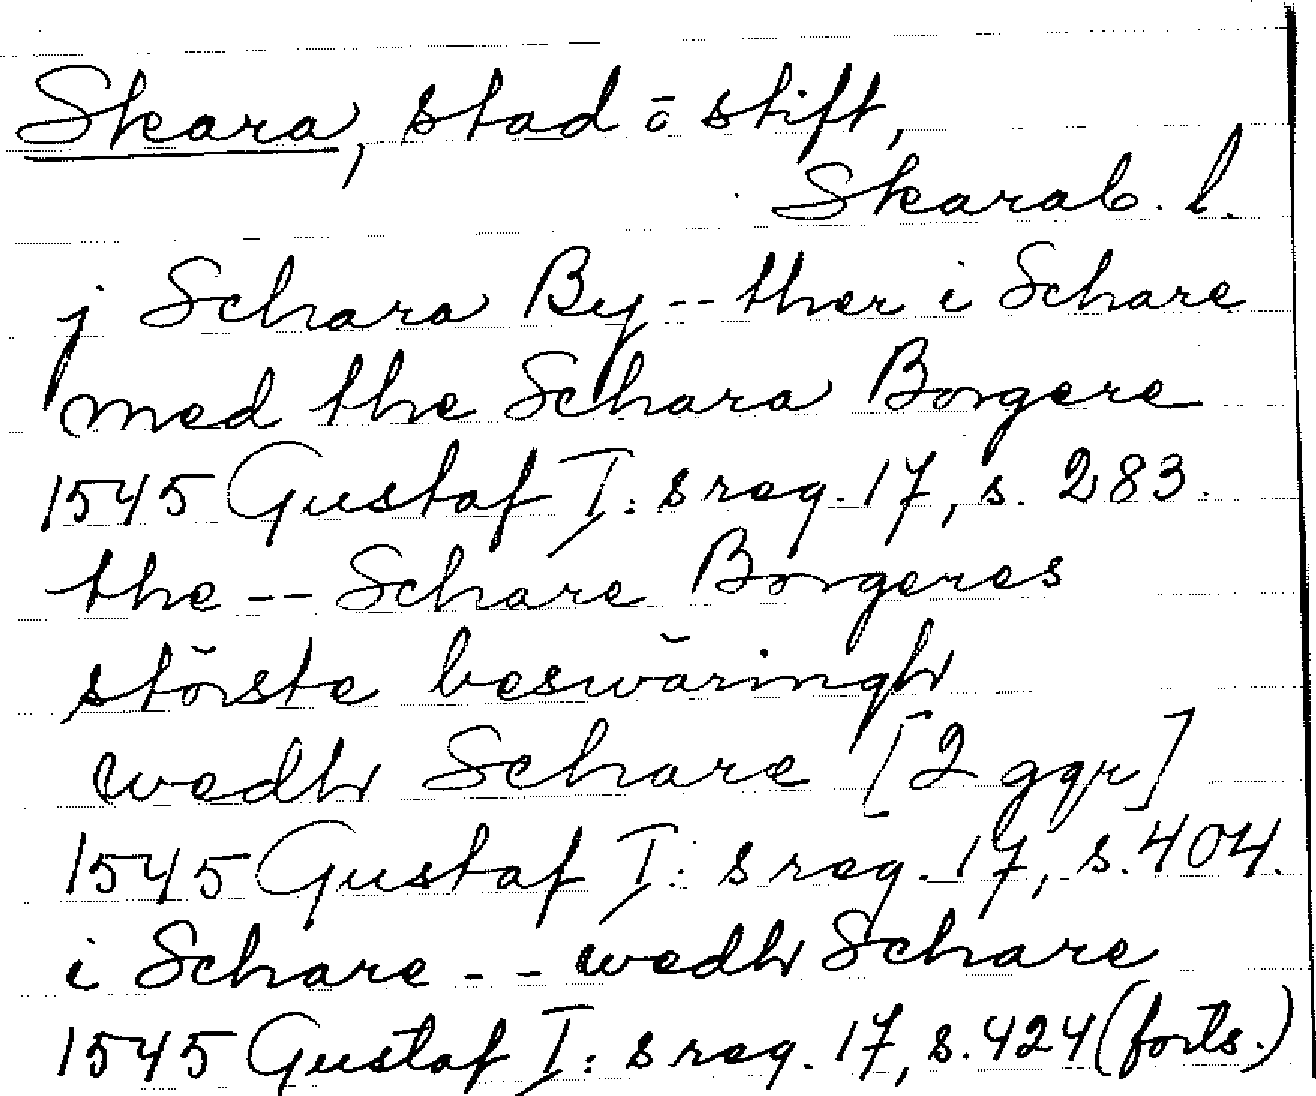 Skara, stad ō stift,
Skarab. l.
j Schara By -- ther i Schare
med the Schara Borgere
1545 Gustaf I:s reg. 17, s. 283.
the -- Schare Borgeres
störste beswäringh
wedh Schare [2 ggr]
1545 Gustaf I:s reg. 17, s. 404.
i Schare -- wedh Schare
1545 Gustaf I:s reg. 17, s. 424 (forts.)